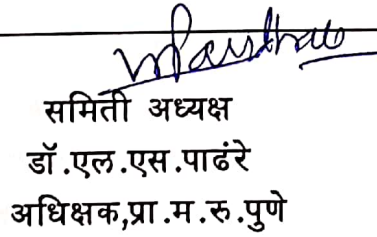 समिती अध्यक्ष
डॉ.एल.एस.पाढंरे
अधिक्षक,प्रा.म.रु.पुणे